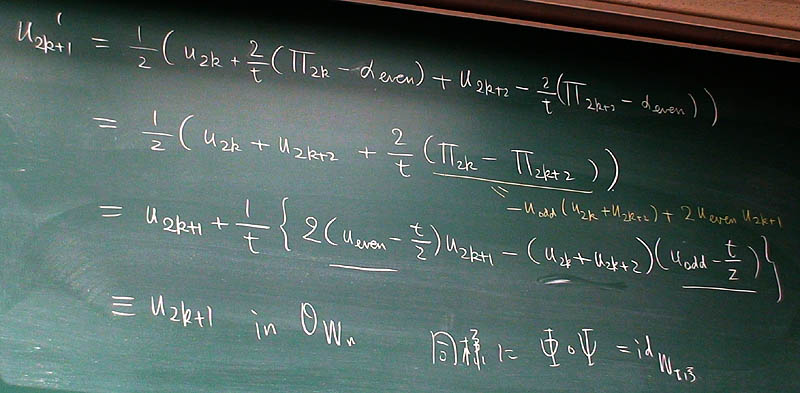 u'₂ₖ₊₁ = 1/2 ( u₂ₖ + 2/t (Π₂ₖ − α_even) + u₂ₖ₊₂ − 2/t (Π₂ₖ₊₂ − α_even) )
= 1/2 ( u₂ₖ + u₂ₖ₊₂ + 2/t (Π₂ₖ − Π₂ₖ₊₂) )
= −u_odd (u₂ₖ + u₂ₖ₊₂) + 2 u_even u₂ₖ₊₁
= u₂ₖ₊₁ + 1/t { 2 (u_even − t/2) u₂ₖ₊₁ − (u₂ₖ + u₂ₖ₊₂) (u_odd − t/2) }
≡ u₂ₖ₊₁ in O_Wₙ 同様に Φ∘Ψ = id